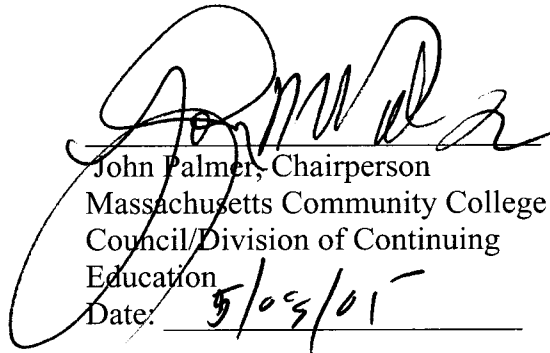 John Palmer, Chairperson
Massachusetts Community College
Council/Division of Continuing
Education
Date: 5/05/05